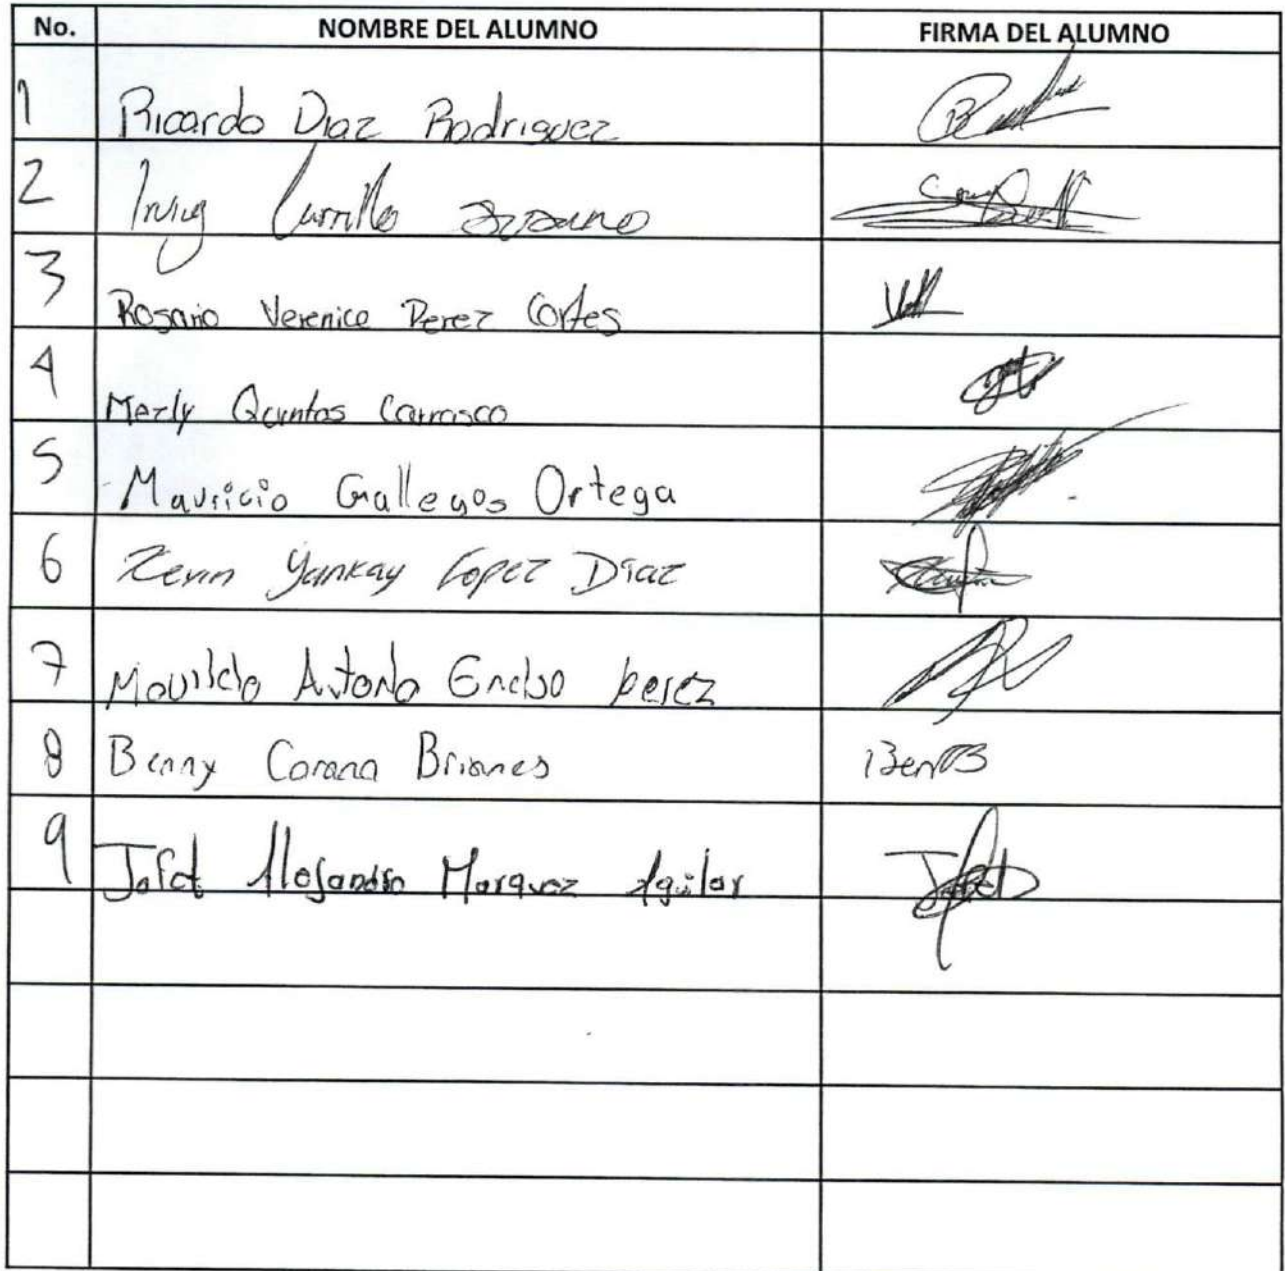 No. NOMBRE DEL ALUMNO FIRMA DEL ALUMNO
1 Ricardo Diaz Rodriguez
2 Irving Carrillo
3 Rosario Verenice Perez Cortes
4 Merly Quintas Carrasco
5 Mauricio Gallegos Ortega
6 Kevin Yankay Lopez Diaz
7 Mauricio Antonio Enciso perez
8 Benny Corona Briones
9 Jafet Alejandro Marquez Aguilar